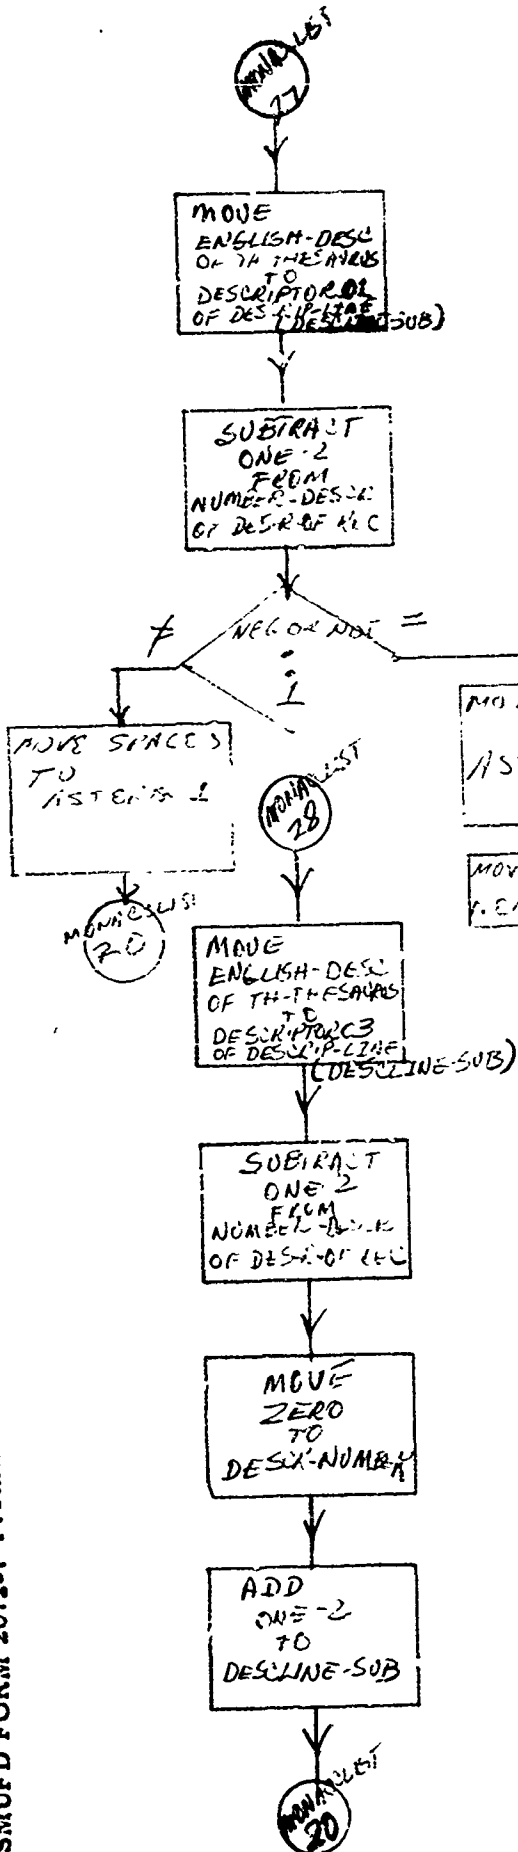 MONACLIST
27
MOVE
ENGLISH-DESC
OF TH THESAURUS
TO
DESCRIPTOR 01
OF DESCRIP-LINE
(DESCLINE-SUB)
SUBTRACT
ONE-2
FROM
NUMBER-DESCR
OF DESCR-OF REC
≠
NEG OR NOT
=
:
1
MOVE SPACES
TO
ASTERISK 1
MO
AS
MOV
MONACLIST
28
MONACLIST
20
MOVE
ENGLISH-DESC
OF TH-THESAURUS
TO
DESCRIPTOR C3
OF DESCRIP-LINE
(DESCLINE-SUB)
SUBTRACT
ONE 2
FROM
OF
MOVE
ZERO
TO
DESCR-NUMBER
ADD
ONE-2
TO
DESCLINE-SUB
MONACLIST
20
SMUFD FORM